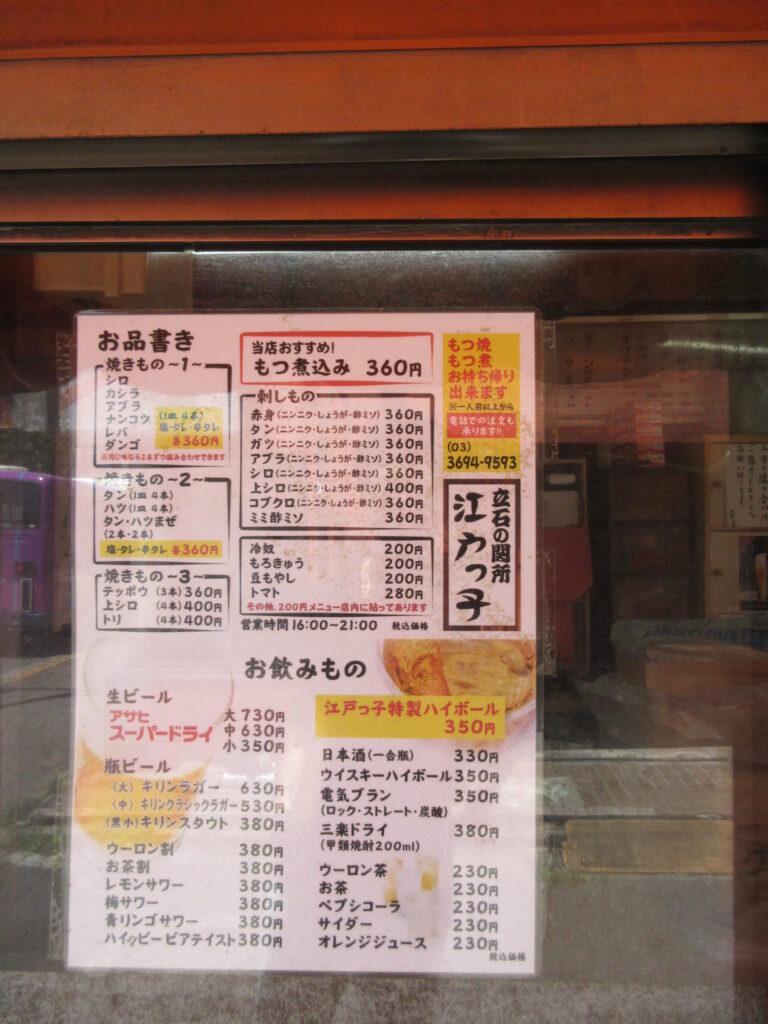 お品書き
焼きもの ~1~
シロ
カシラ
アブラ
ナンコツ
レバ
ダンゴ
(1皿 4本)
塩・タレ・辛タレ
各360円
※同じ味なら2本ずつ組み合わせできます
焼きもの ~2~
タン(1皿 4本)
ハツ(1皿 4本)
タン・ハツまぜ
(2本・2本)
塩・タレ・辛タレ 各360円
焼きもの ~3~
テッポウ (3本) 360円
上シロ (4本) 400円
トリ (4本) 400円
当店おすすめ!
もつ煮込み 360円
刺しもの
赤身(ニンニク・しょうが・酢ミソ) 360円
タン(ニンニク・しょうが・酢ミソ) 360円
ガツ(ニンニク・しょうが・酢ミソ) 360円
アブラ(ニンニク・しょうが・酢ミソ) 360円
シロ(ニンニク・しょうが・酢ミソ) 360円
上シロ(ニンニク・しょうが・酢ミソ) 400円
コブクロ(ニンニク・しょうが・酢ミソ) 360円
ミミ酢ミソ 360円
冷奴 200円
もろきゅう 200円
豆もやし 200円
トマト 280円
その他、200円メニュー店内に貼ってあります
営業時間 16:00~21:00 税込価格
もつ焼
もつ煮
お持ち帰り
出来ます
※一人前以上から
電話での注文も
承ります!!
(03)
3694-9593
立石の関所
江戸っ子
お飲みもの
生ビール
アサヒ
スーパードライ
大 730円
中 630円
小 350円
瓶ビール
(大) キリンラガー 630円
(中) キリンクラシックラガー 530円
(黒小) キリンスタウト 380円
ウーロン割 380円
お茶割 380円
レモンサワー 380円
梅サワー 380円
青リンゴサワー 380円
ハイッピー ビアテイスト 380円
江戸っ子特製ハイボール
350円
日本酒(一合瓶) 330円
ウイスキーハイボール 350円
電気ブラン 350円
(ロック・ストレート・炭酸)
三楽ドライ 380円
(甲類焼酎200ml)
ウーロン茶 230円
お茶 230円
ペプシコーラ 230円
サイダー 230円
オレンジジュース 230円
税込価格